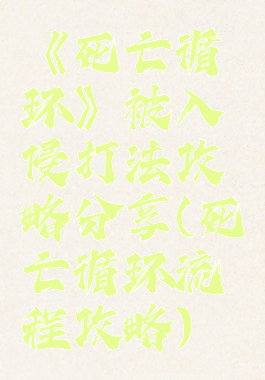 《死亡循
环》被入
侵打法攻
略分享(死
亡循环流
程攻略)